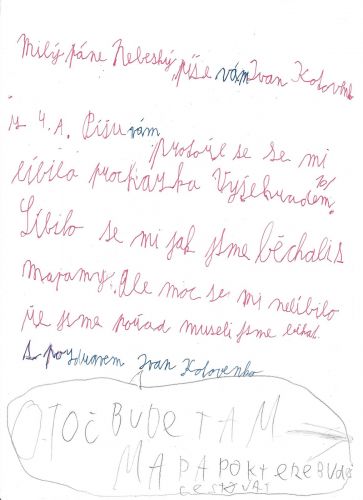 Milý páne Nebeský, píše vám Ivan Kotovenk
is 4.A. Píšu vám
protože se se mi
líbila procházka Vyšehradem.
Líbilo se mi jak jsme běchalis
mapamy. Ale moc se mi nelíbilo
že jsme pořad museli jsme běhat.
s pozdravem Ivan Kolovenko
OTOČ BUDE TAM
MAPA PO KTERE BUDEŠ
CESTOVAT